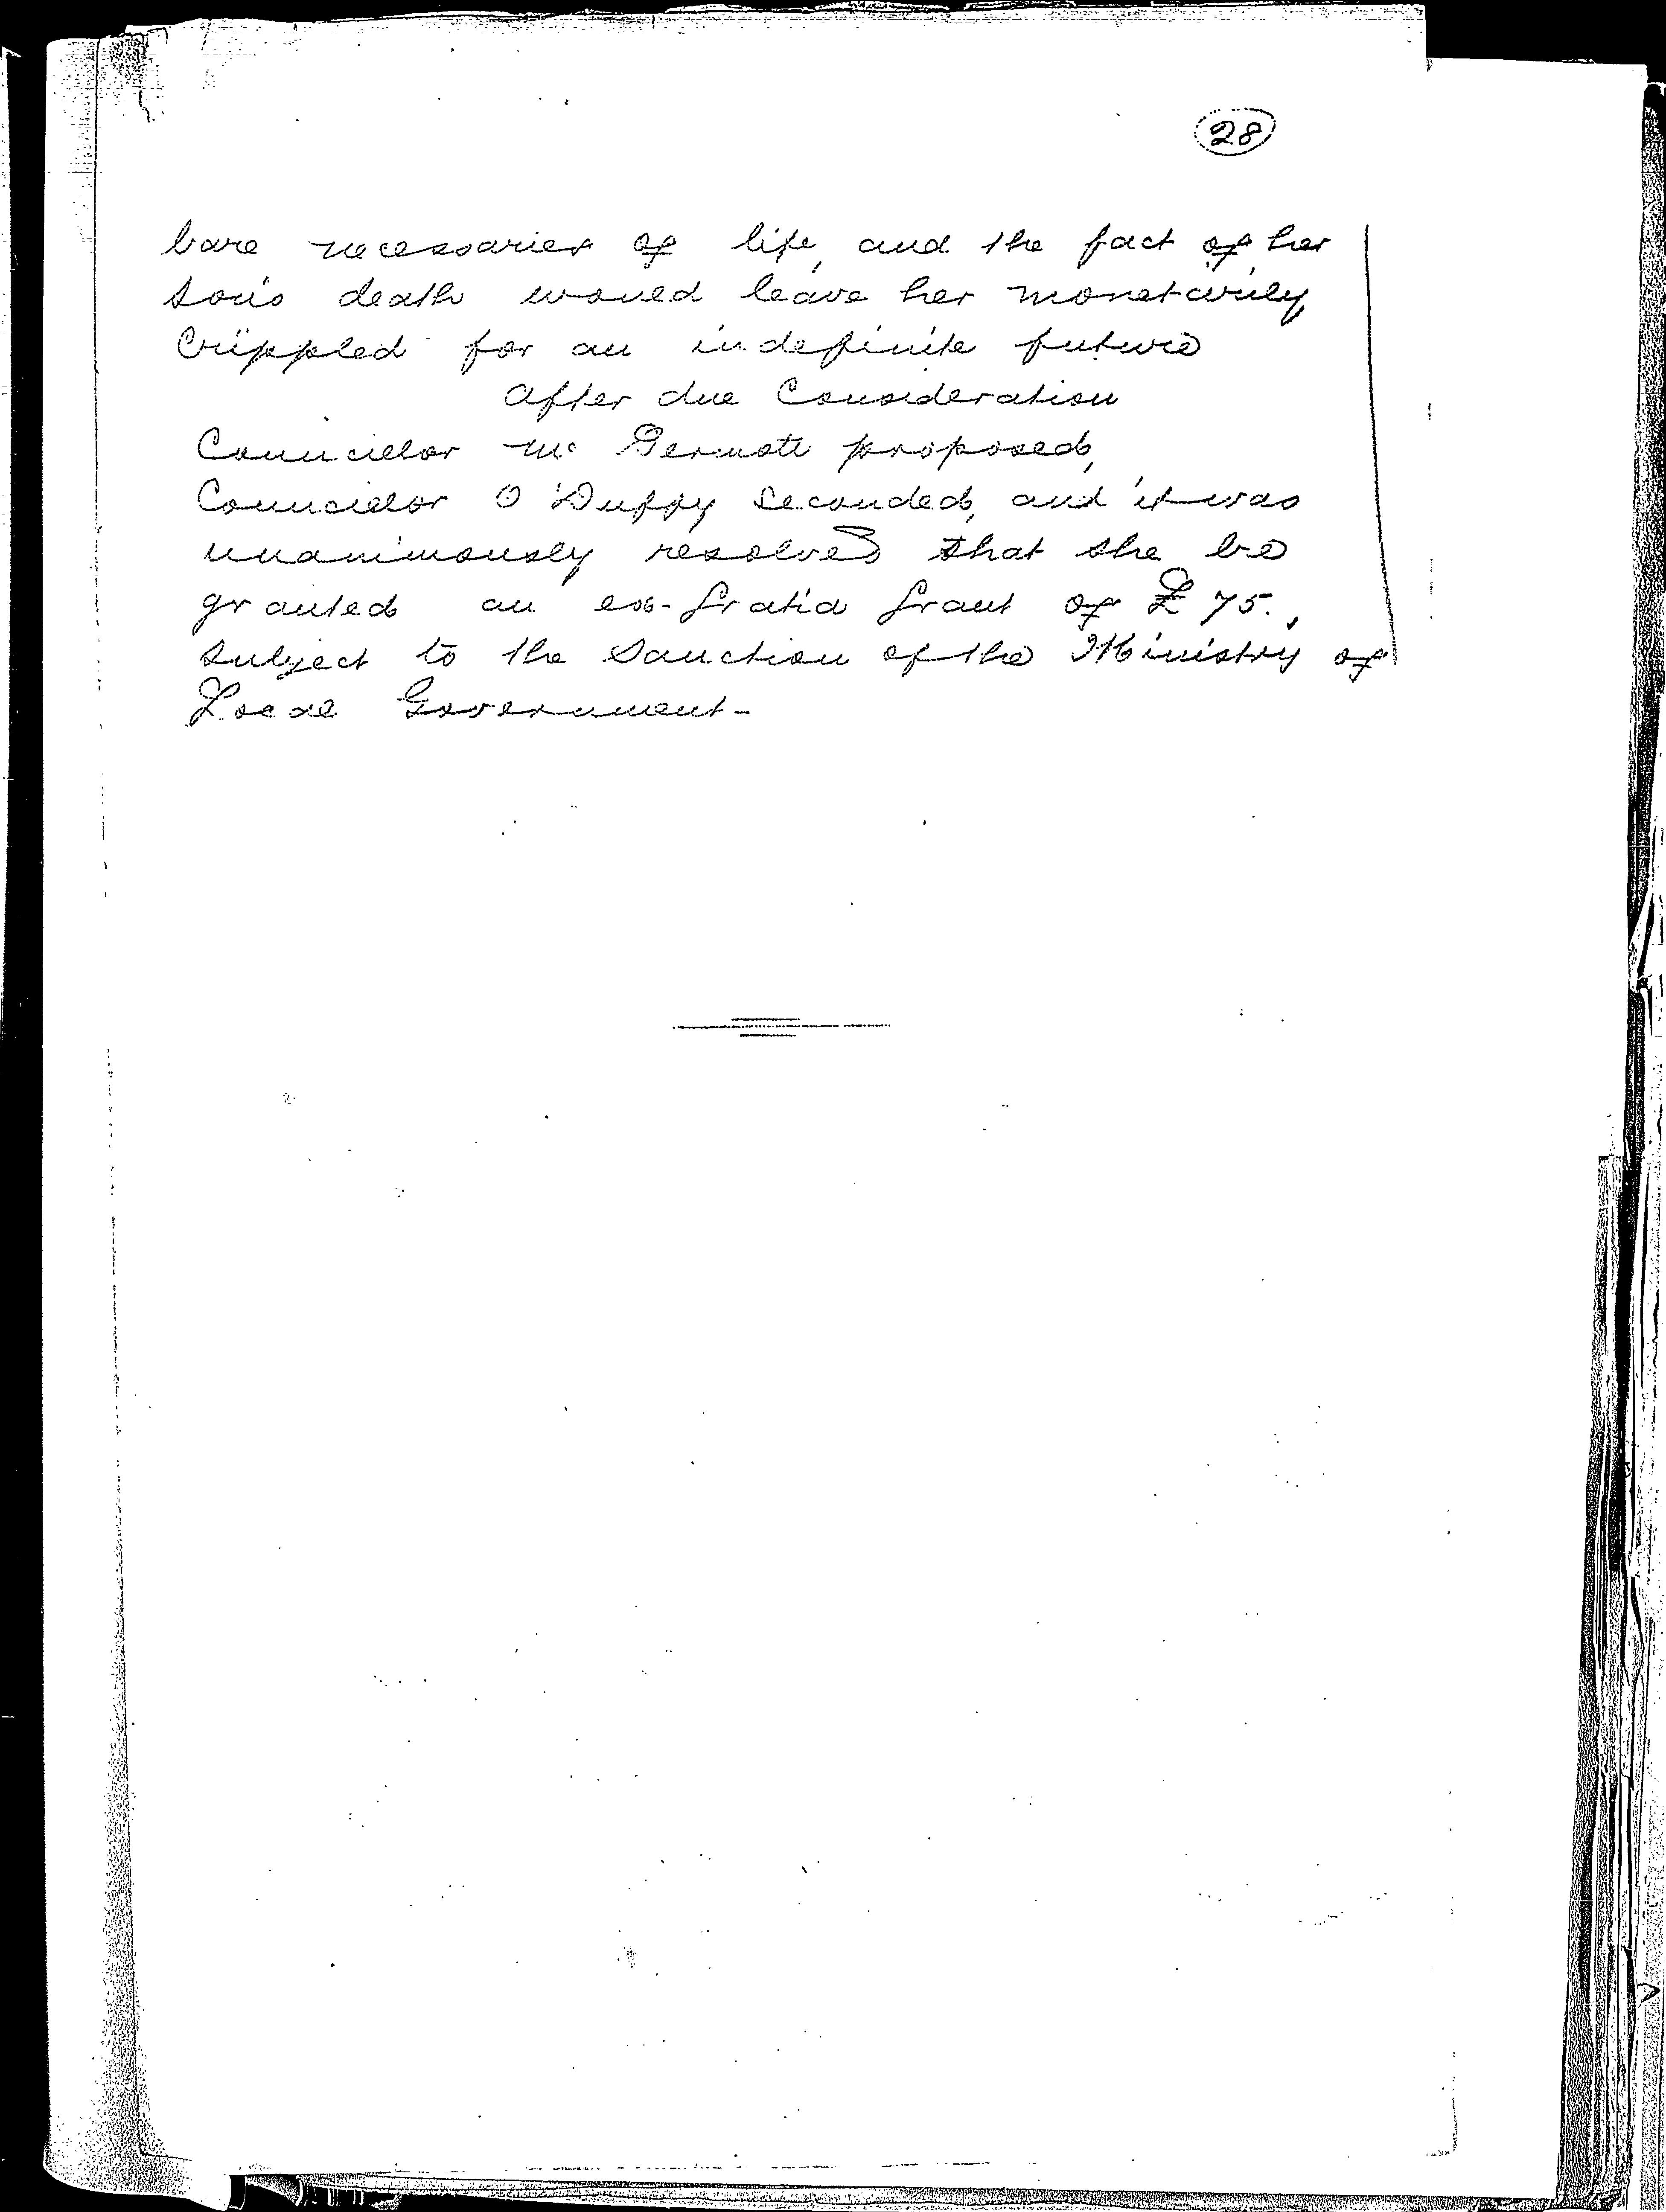 28
bare necessaries of life, and the fact of her
son's death would leave her monetarily
crippled for an indefinite future
After due Consideration
Councillor Mc Dermott proposed,
Councillor O'Duffy seconded, and it was
unanimously resolved that she be
granted an ex-gratia grant of £75.,
subject to the Sanction of the Ministry of
Local Government-